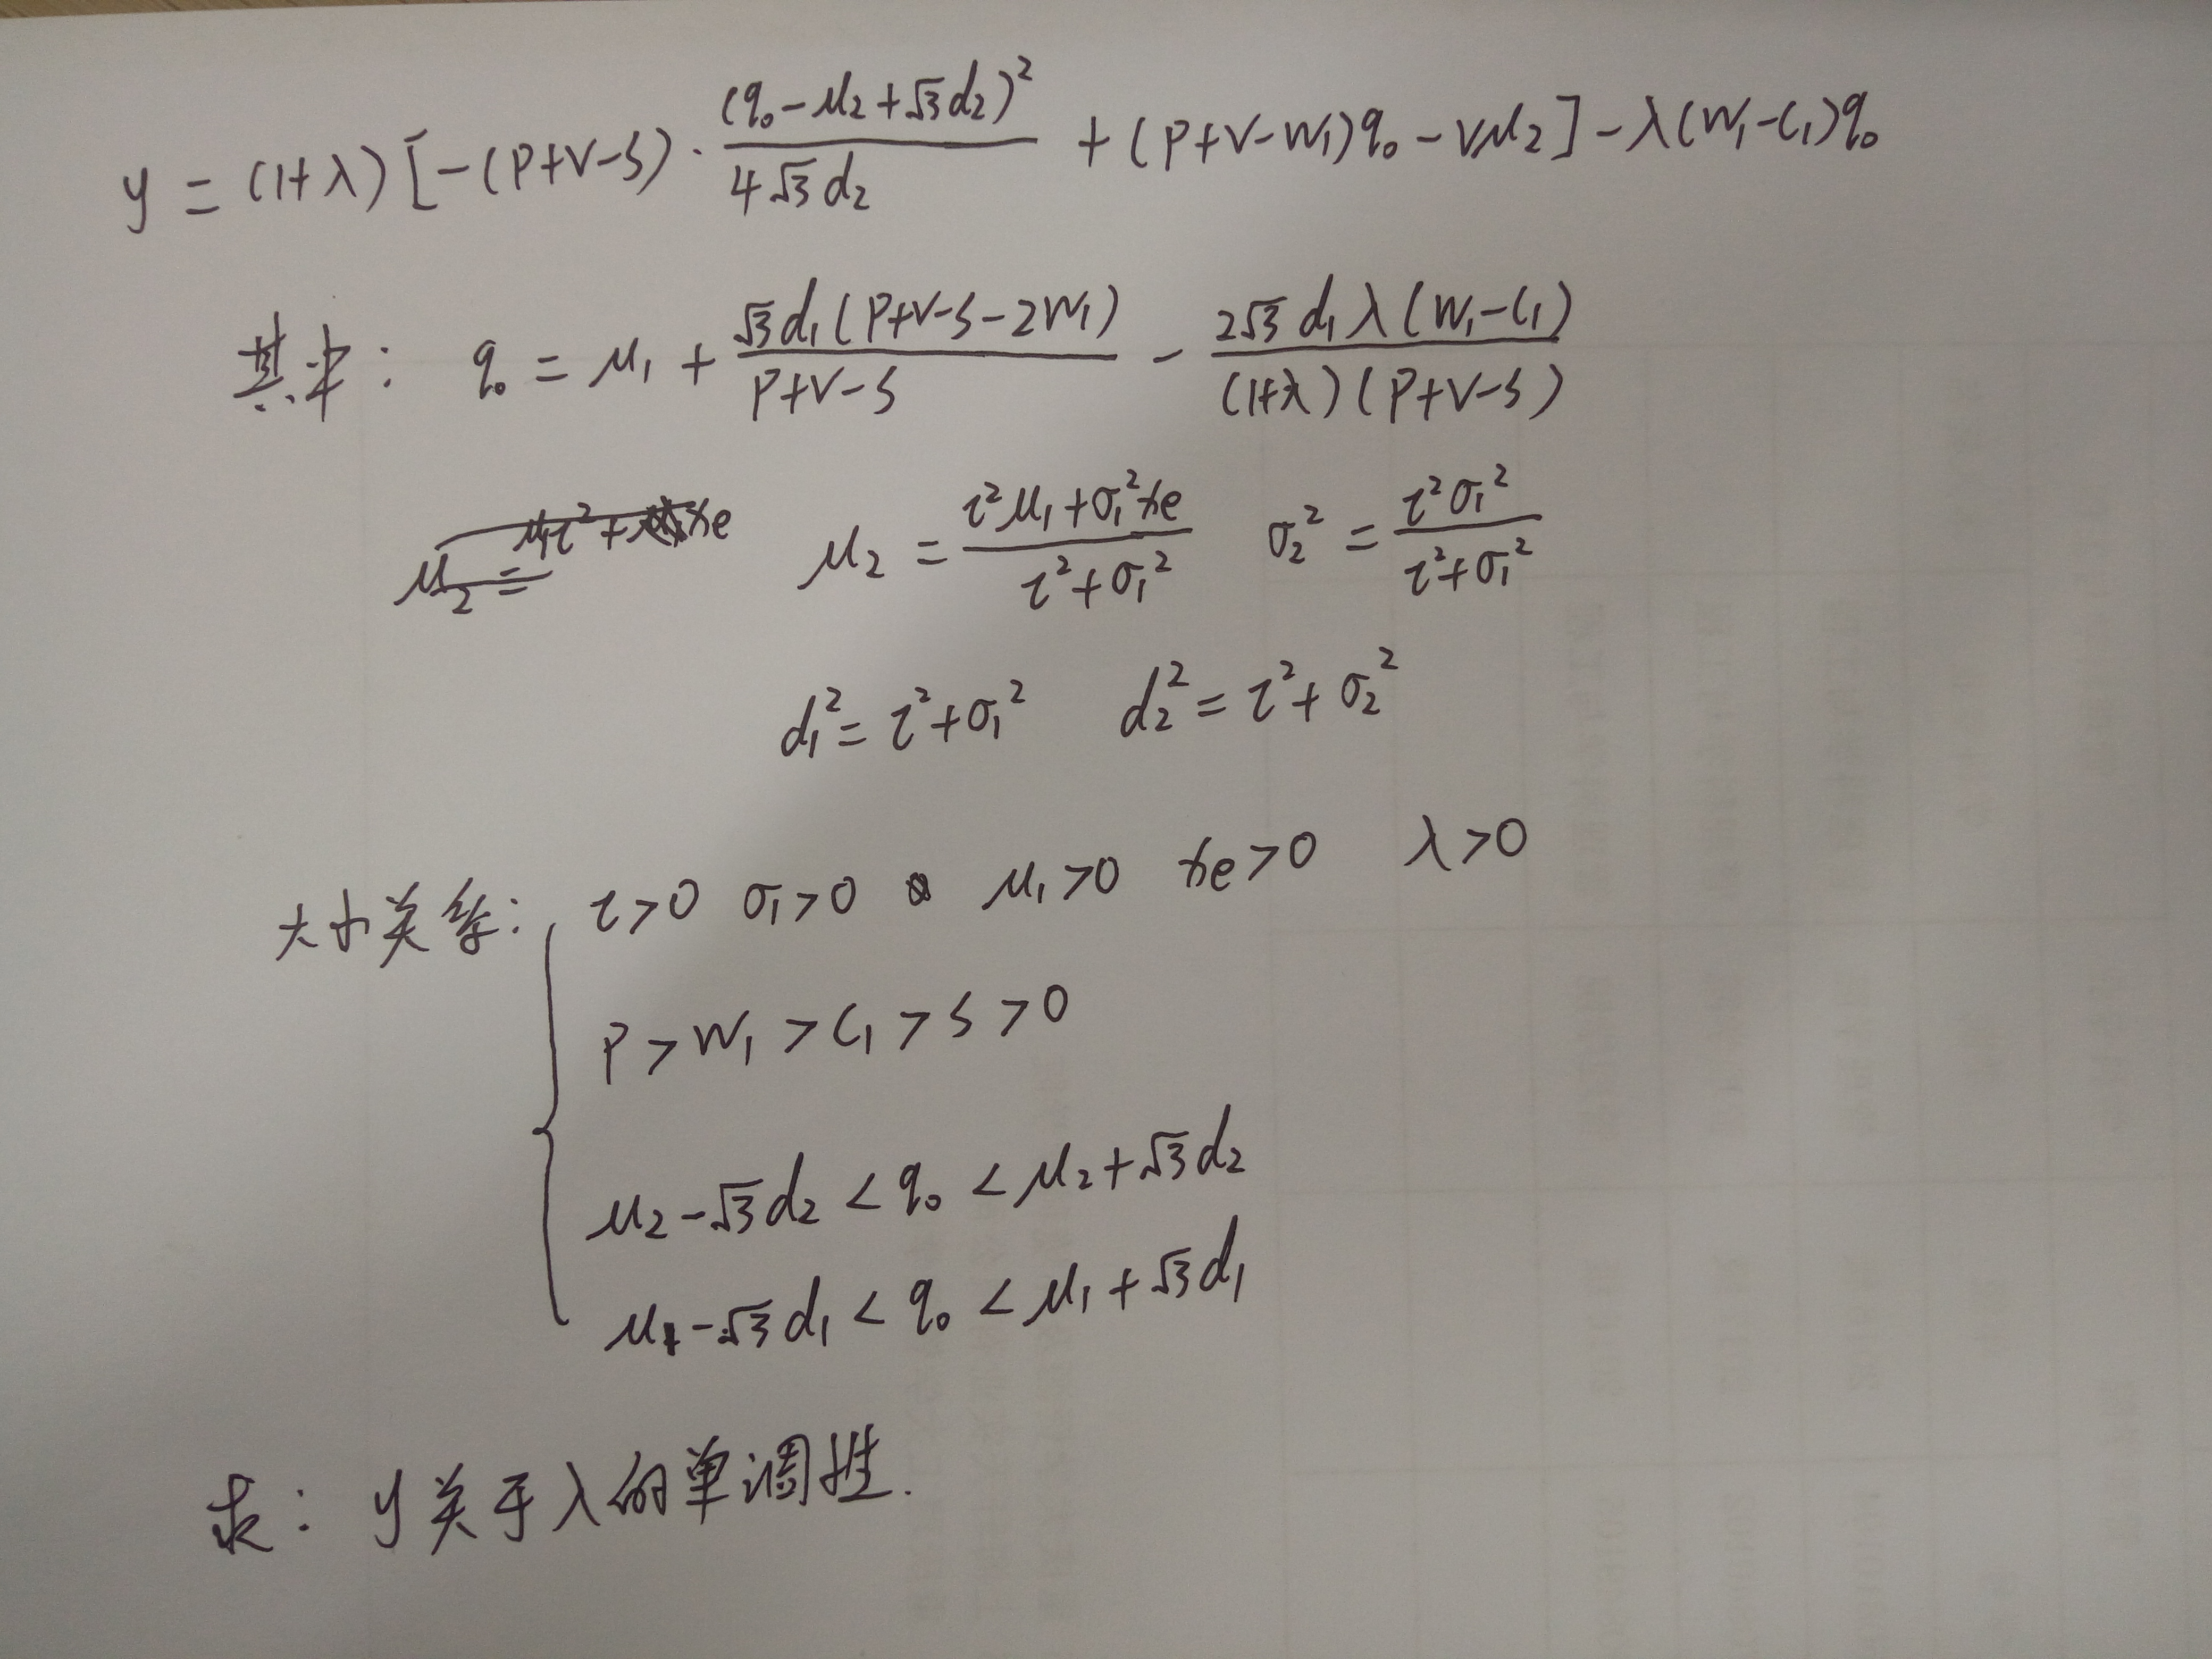 y = (1+λ)[-(P+V-S)·(q₀-μ₂+√3d₂)²/4√3d₂ + (P+V-W₁)q₀-Vμ₂]-λ(W₁-C₁)q₀
其中: q₀ = μ₁ + √3d₁(P+V-S-2W₁)/P+V-S - 2√3d₁λ(W₁-C₁)/(1+λ)(P+V-S)
μ₂ = τ²μ₁+σ₁²xe/τ²+σ₁² σ₂² = τ²σ₁²/τ²+σ₁²
d₁² = τ²+σ₁² d₂² = τ²+σ₂²
大小关系: τ>0 σ₁>0 μ₁>0 xe>0 λ>0
P>W₁>C₁>S>0
μ₂-√3d₂<q₀<μ₂+√3d₂
μ₁-√3d₁<q₀<μ₁+√3d₁
求: y关于λ的单调性.